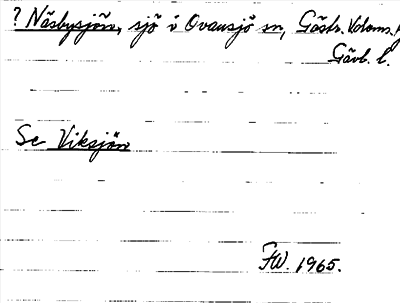 ? Näsbysjön, sjö i Ovansjö sn, Gästr.
Gävl. l.
Se Viksjön
FW. 1965.